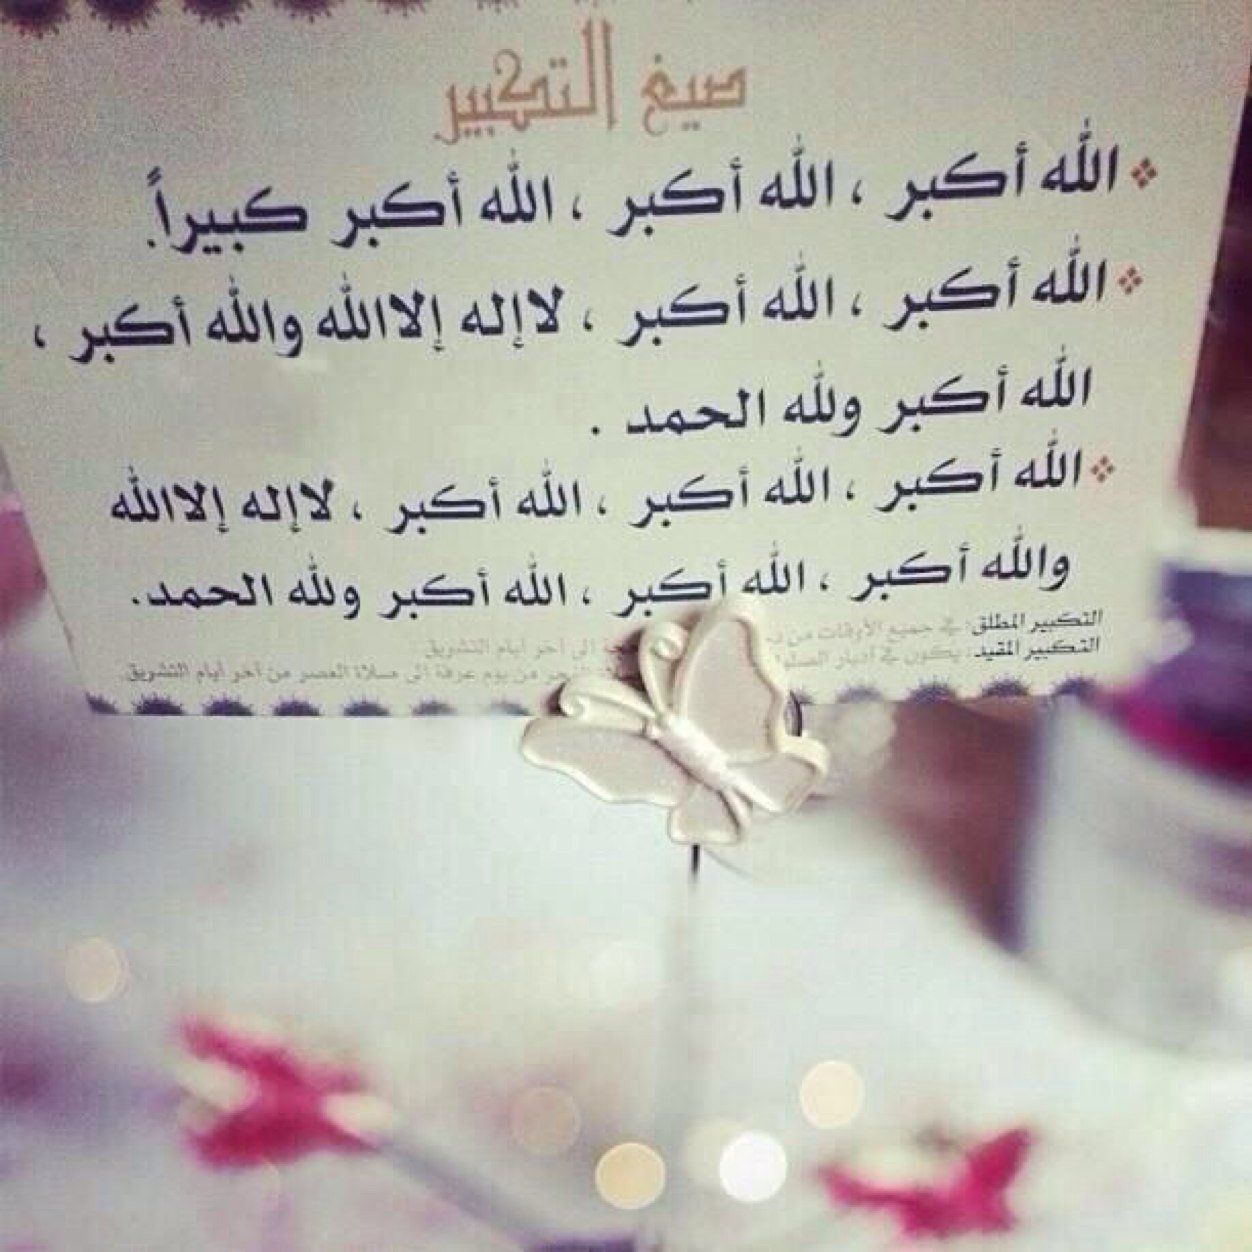 صيغ التكبير
الله أكبر ، الله أكبر ، الله أكبر كبيراً.
الله أكبر ، الله أكبر ، لاإله إلاالله والله أكبر ،
الله أكبر ولله الحمد .
الله أكبر ، الله أكبر ، الله أكبر ، لاإله إلاالله
والله أكبر ، الله أكبر ، الله أكبر ولله الحمد.
التكبير المطلق: في جميع الأوقات من إلى آخر أيام التشريق.
التكبير المقيد: يكون في أدبار من يوم عرفة الى صلاة العصر من آخر أيام التشريق